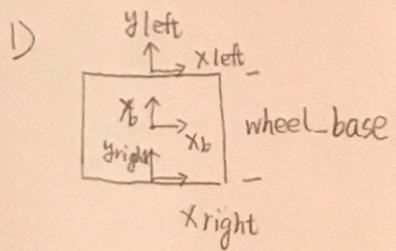 1)
y left
x left
x b
x b
wheel_base
y right
x right